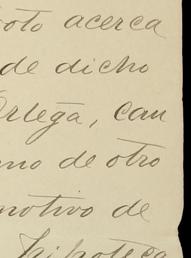 oto acerca
de dicho
Ortega, cau
no de otro
motivo de
hipoteca